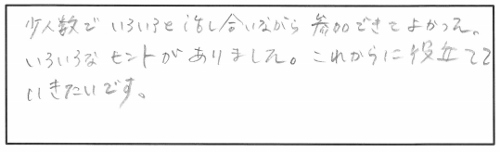 少人数で いろいろと話し合いながら 参加できてよかった。
いろいろなヒントがありました。これからに役立てて
いきたいです。